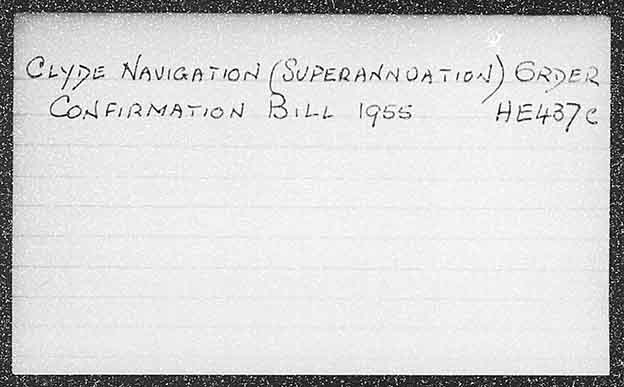 CLYDE NAVIGATION (SUPERANNUATION) ORDER
CONFIRMATION BILL 1955 HE437C